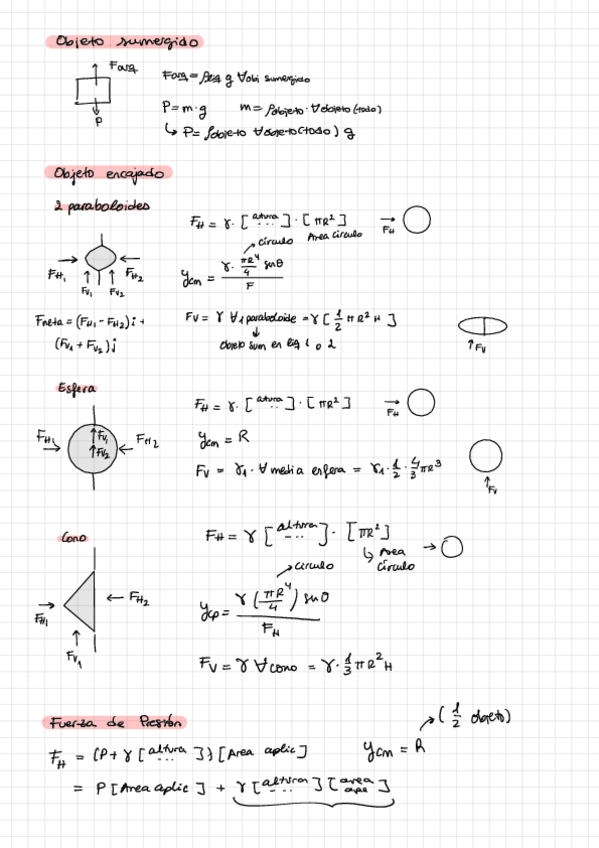 Objeto sumergido
Farq
P
Farq = ρliq g ∀obj sumergido
P = m · g
m = ρobjeto · ∀objeto (todo)
↳ P = ρobjeto ∀objeto (todo) g
Objeto encajado
2 paraboloides
FH1
FH2
Fv1
Fv2
FH = γ · [altura ...] · [πR²]
círculo
Area círculo
→ FH
ycm = γ · πR⁴/4 sinθ / F
Fneta = (FH1 - FH2)i +
(Fv1 + Fv2)j
Fv = γ ∀1 paraboloide = γ[1/2 πR² H]
objeto sum en liq 1 o 2
↑Fv
Esfera
FH1
FH2
Fv1
Fv2
FH = γ · [altura ...] · [πR²]
→ FH
ycm = R
Fv = γ1 · ∀ media esfera = γ1 · 1/2 · 4/3 πR³
↑Fv
Cono
FH1
FH2
Fv1
FH = γ [altura ...] · [πR²]
↳ Area círculo
círculo
ycp = γ (πR⁴/4) sinθ / FH
Fv = γ ∀cono = γ · 1/3 πR² H
Fuerza de Presión
FH = (P + γ [altura ...]) [Area aplic]
= P [Area aplic] + γ [altura ...] [area apl]
ycm = R
(1/2 objeto)